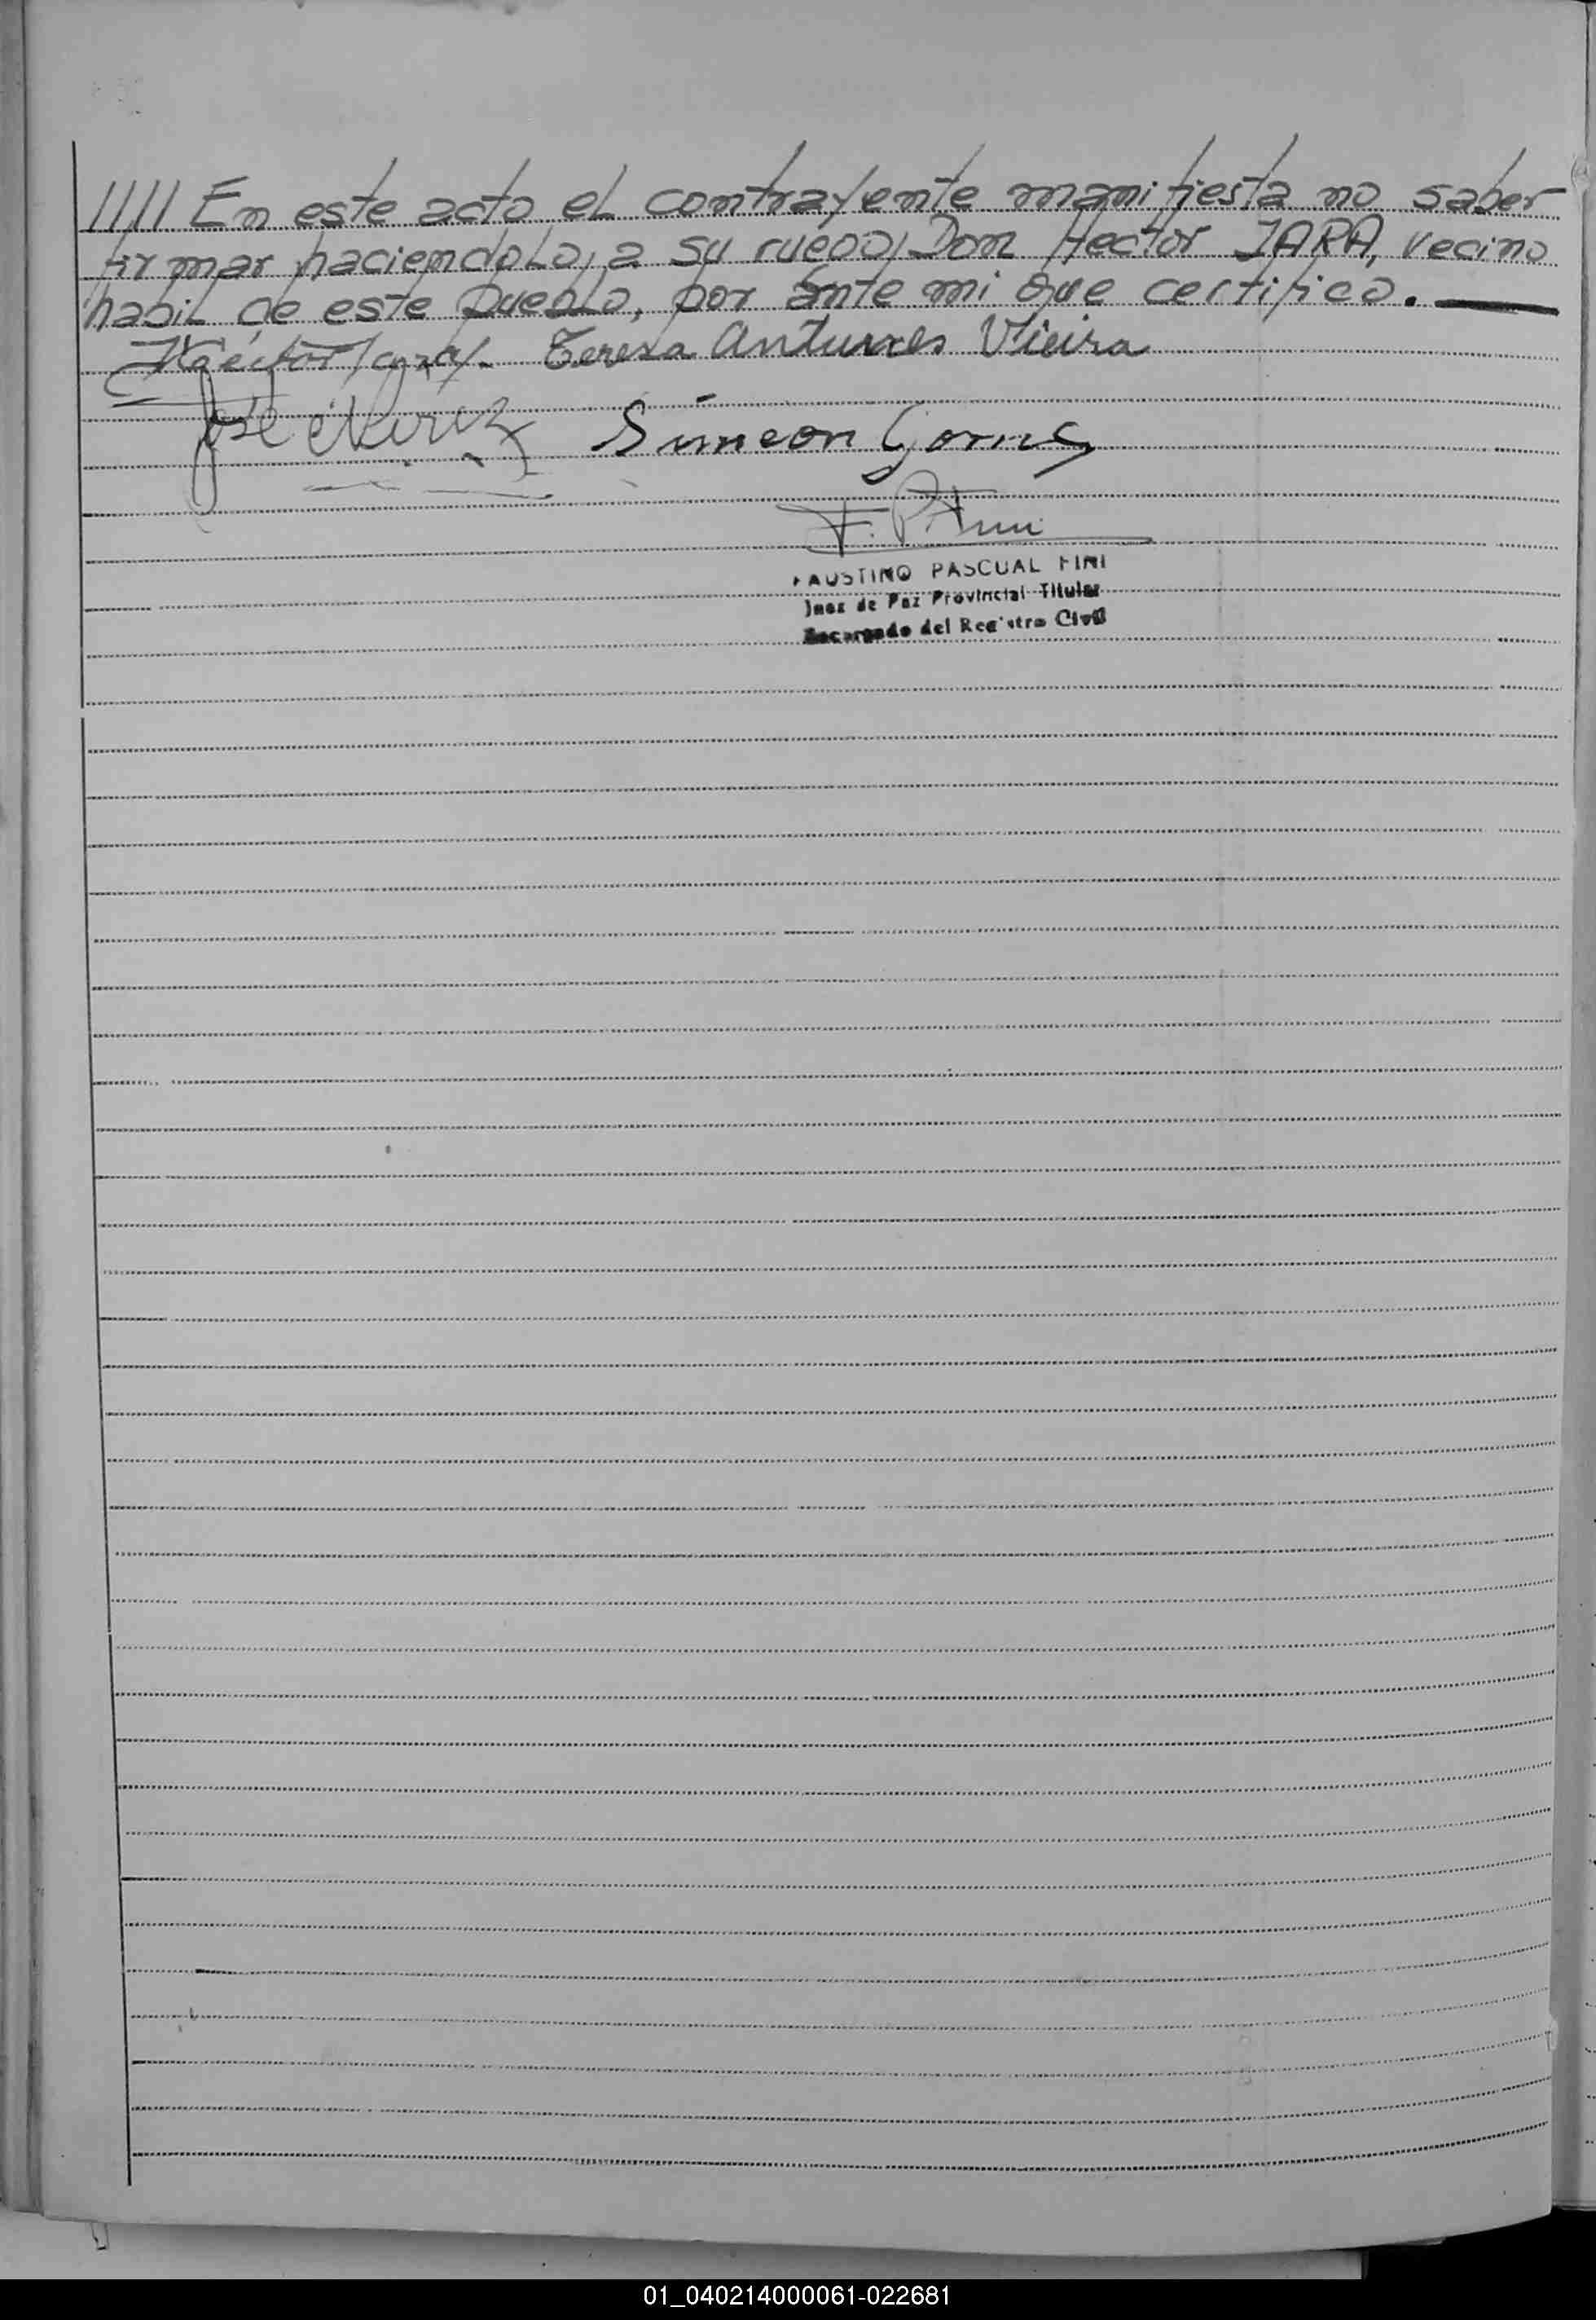 //// En este acto el contrayente manifiesta no saber
firmar haciendolo, a su ruego, Don Hector JARA, vecino
habil de este pueblo, por ante mi que certifico.
Héctor Jara Teresa Antunes Vieira
José Simeon
F. P. Fini
FAUSTINO PASCUAL FINI
Juez de Paz Provincial Titular
Encargado del Registro Civil
01_040214000061-022681